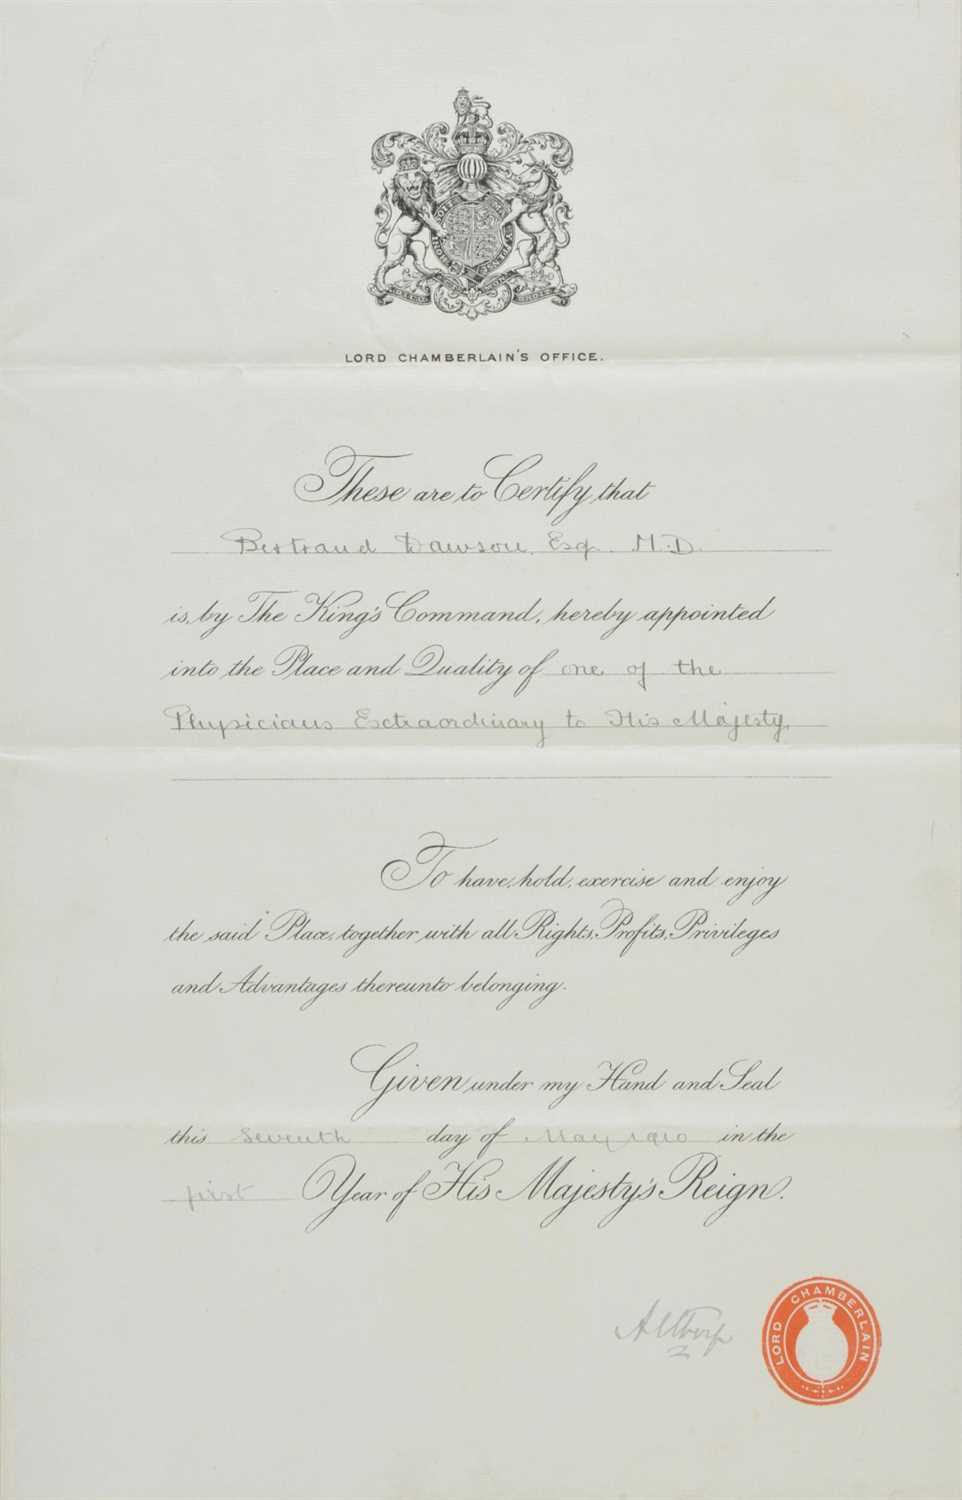 LORD CHAMBERLAIN'S OFFICE.
These are to Certify that
Bertrand Dawson, Esq. M.D.
is, by The King's Command, hereby appointed
into the Place and Quality of one of the
Physicians Extraordinary to His Majesty.
To have, hold, exercise and enjoy
the said Place, together with all Rights, Profits, Privileges
and Advantages thereunto belonging.
Given under my Hand and Seal
this Seventh day of May 1910 in the
first Year of His Majesty's Reign.
Althorp
LORD CHAMBERLAIN